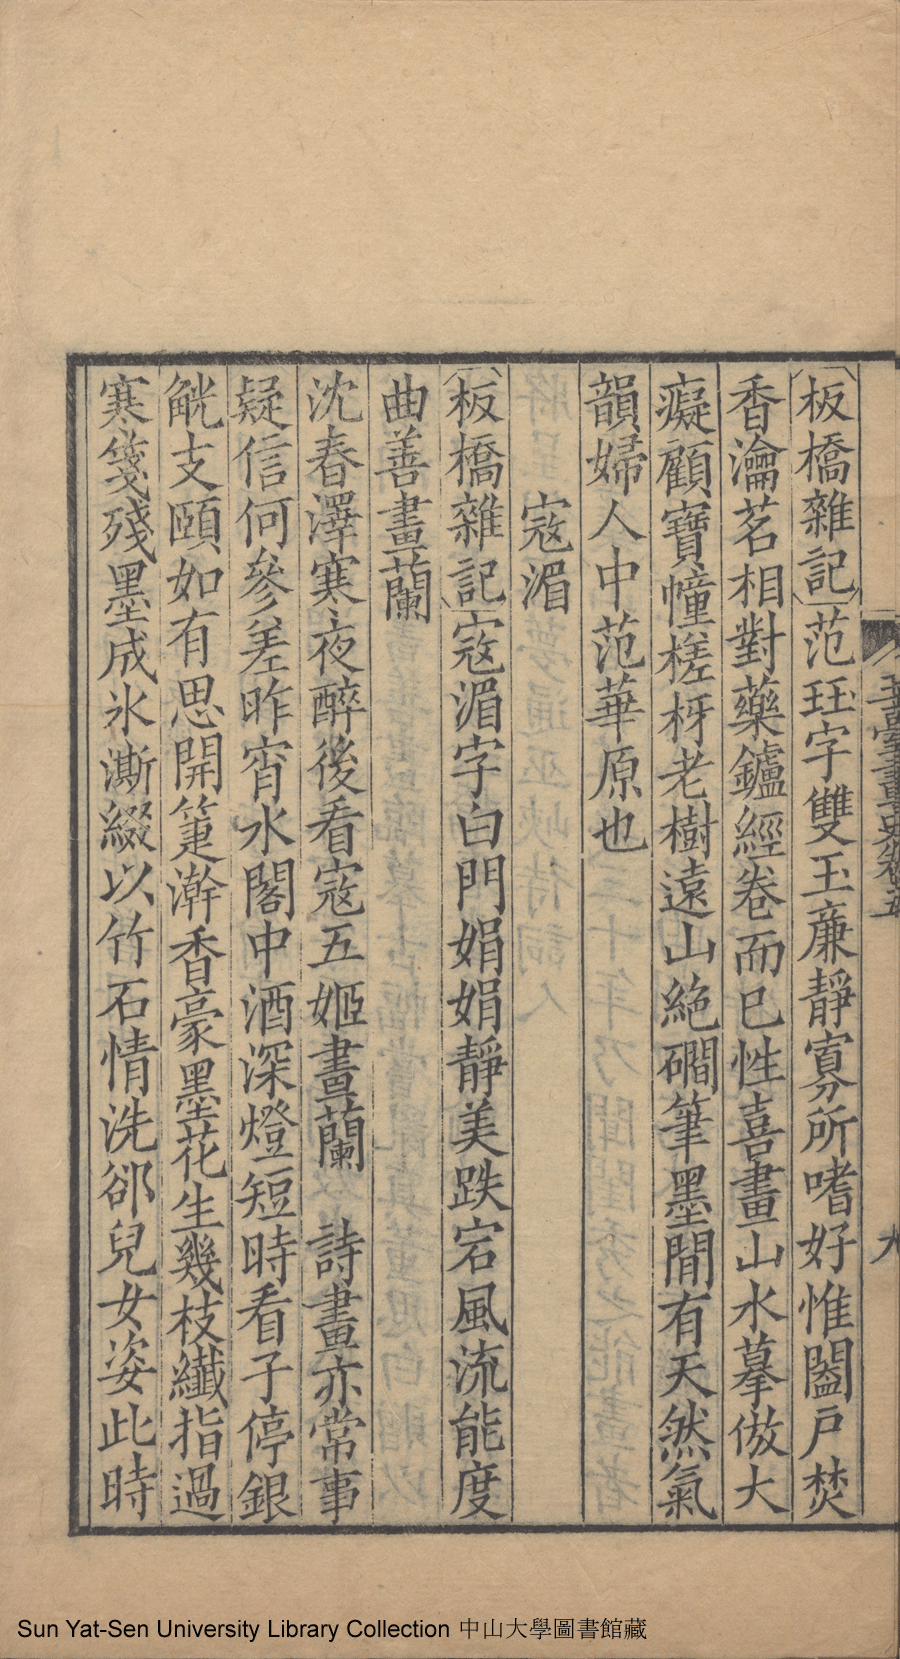 玉臺畫史卷五
九
〔板橋雜記〕范珏字雙玉亷靜寡所嗜好惟闔戶焚
香瀹茗相對藥鑪經卷而已性喜畫山水摹倣大
癡顧寶幢槎枒老樹遠山絶磵筆墨閒有天然氣
韻婦人中范華原也
寇湄
〔板橋雜記〕寇湄字白門娟娟靜美跌宕風流能度
曲善畫蘭
沈春澤寒夜醉後看寇五姬畫蘭　詩畫亦常事
疑信何參差昨宵水閣中酒深燈短時看子停銀
觥支頤如有思開箑澣香豪墨花生幾枝纖指過
寒箋殘墨成氷澌綴以竹石情洗郤兒女姿此時
Sun Yat-Sen University Library Collection 中山大學圖書館藏